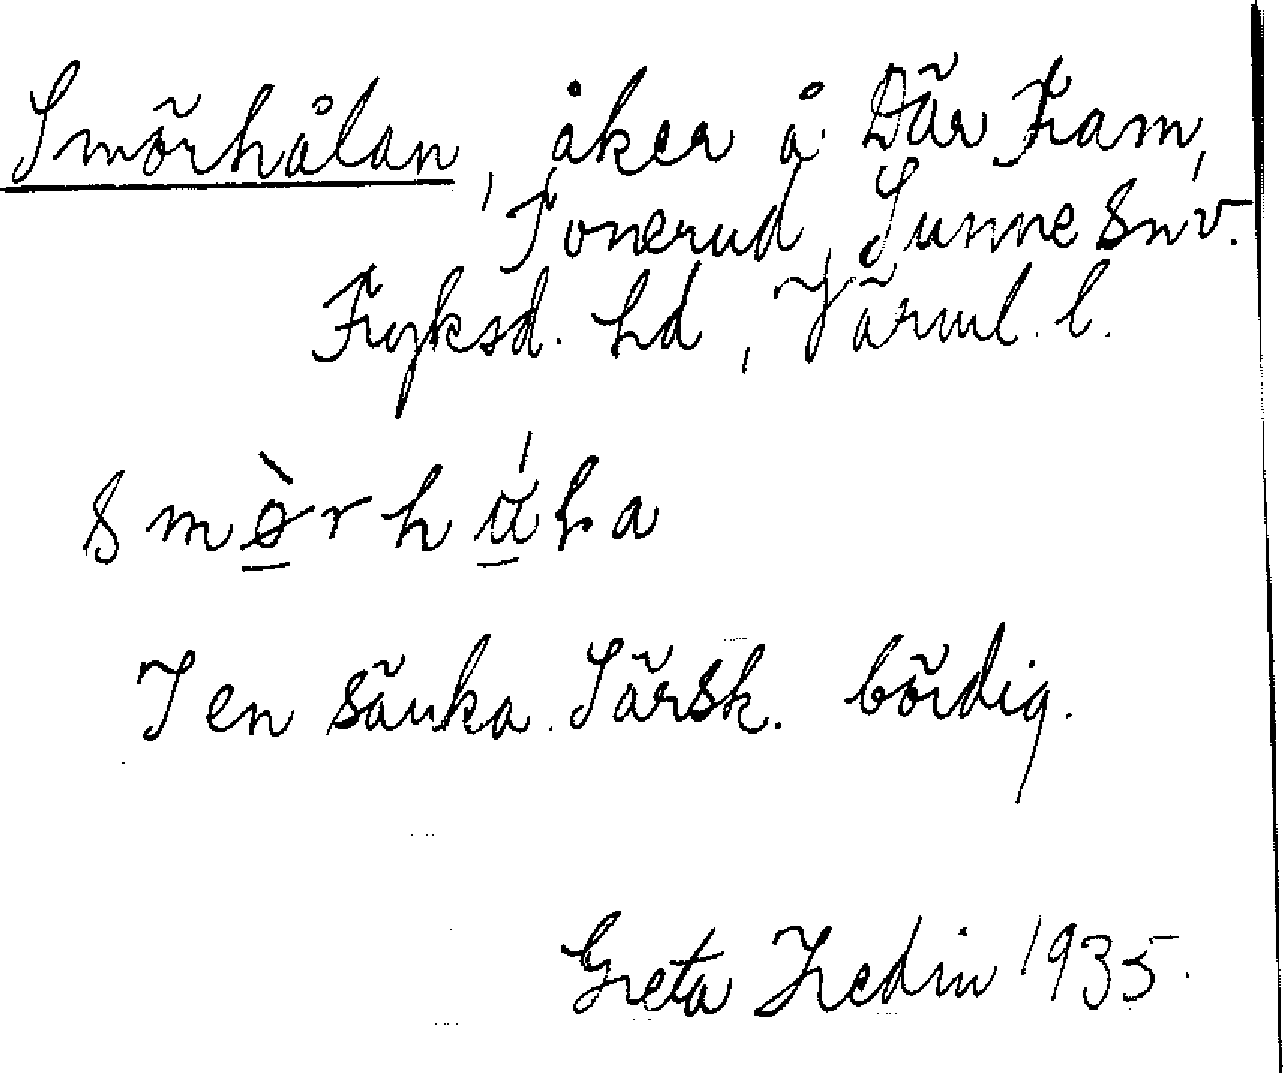 Smörhålan, åker å Där Fram,
Tonerud, Sunne sn v.
Fryksd. hd, Värml. l.
smø̀rhɑ́ɫa
I en sänka. Särsk. bördig.
Greta Hedin 1935.